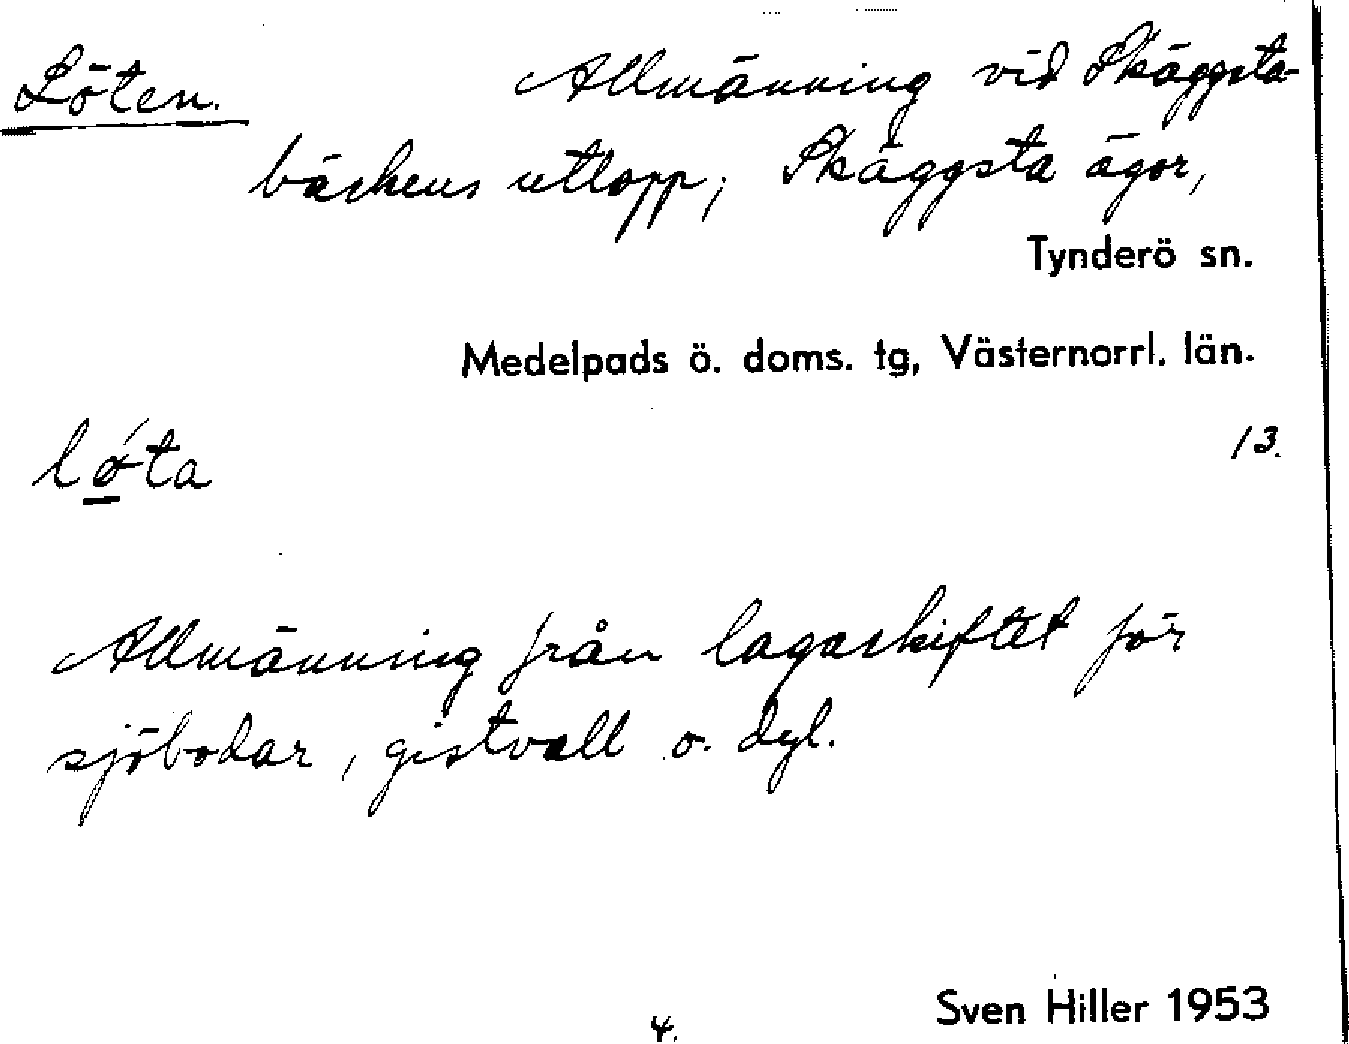 Löten. Allmänning vid Skäggsta-
bäckens utlopp; Skäggsta ägor,
Tynderö sn.
Medelpads ö. doms. tg, Västernorrl. län.
13.
lǿ̱ta
Allmänning från lagaskiftet för
sjöbodar, gistvall o. dyl.
Sven Hiller 1953
4.